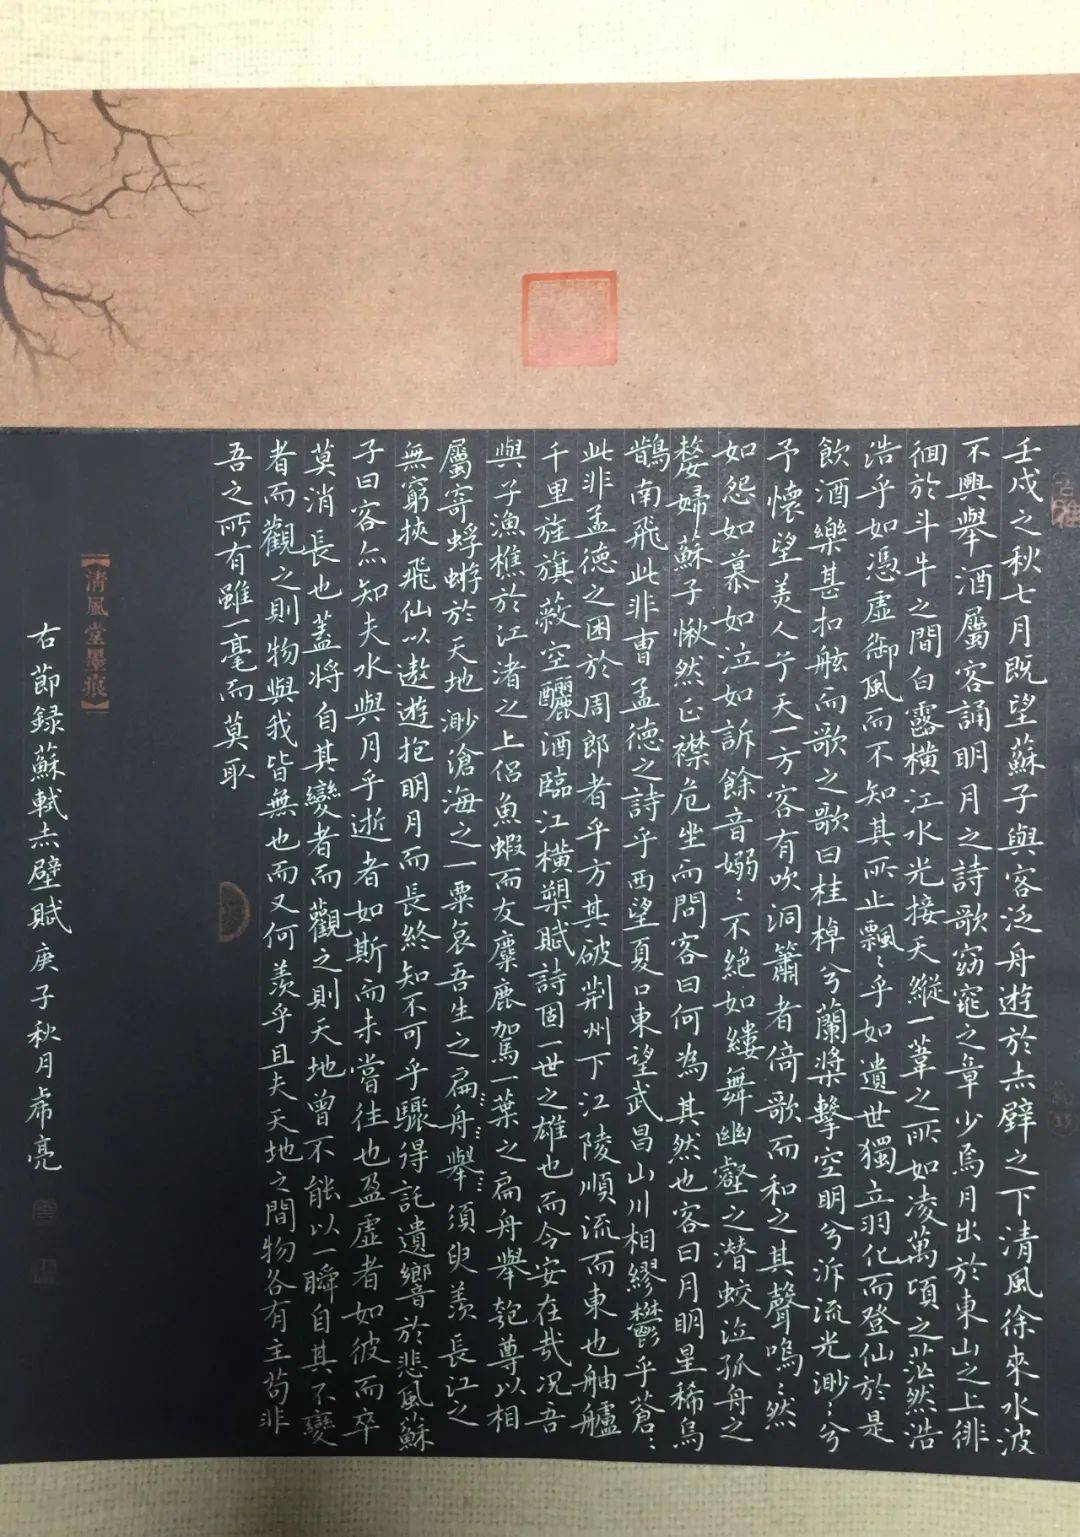 壬戌之秋七月既望蘇子與客泛舟遊於赤壁之下清風徐來水波
不興舉酒屬客誦明月之詩歌窈窕之章少焉月出於東山之上徘
徊於斗牛之間白露橫江水光接天縱一葦之所如凌萬頃之茫然浩
浩乎如馮虛御風而不知其所止飄〻乎如遺世獨立羽化而登仙於是
飲酒樂甚扣舷而歌之歌曰桂棹兮蘭槳擊空明兮泝流光渺〻兮
予懷望美人兮天一方客有吹洞簫者倚歌而和之其聲嗚〻然
如怨如慕如泣如訴餘音嫋〻不絕如縷舞幽壑之潛蛟泣孤舟之
嫠婦蘇子愀然正襟危坐而問客曰何為其然也客曰月明星稀烏
鵲南飛此非曹孟德之詩乎西望夏口東望武昌山川相繆鬱乎蒼〻
此非孟德之困於周郎者乎方其破荊州下江陵順流而東也舳艫
千里旌旗蔽空釃酒臨江橫槊賦詩固一世之雄也而今安在哉況吾
與子漁樵於江渚之上侶魚蝦而友麋鹿駕一葉之扁舟舉匏尊以相
屬寄蜉蝣於天地渺滄海之一粟哀吾生之扁舟舉須臾羨長江之
無窮挾飛仙以遨遊抱明月而長終知不可乎驟得託遺響於悲風蘇
子曰客亦知夫水與月乎逝者如斯而未嘗往也盈虛者如彼而卒
莫消長也蓋將自其變者而觀之則天地曾不能以一瞬自其不變
者而觀之則物與我皆無也而又何羨乎且夫天地之間物各有主苟非
吾之所有雖一毫而莫取
【清風堂墨痕】
右節録蘇軾赤壁賦庚子秋月希亮